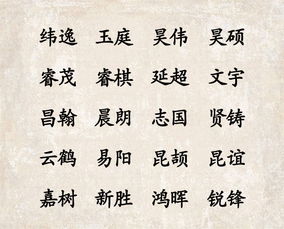 纬逸 玉庭 昊伟 昊硕
睿茂 睿棋 延超 文宇
昌翰 晨朗 志国 贤铸
云鹤 易阳 昆颉 昆谊
嘉树 新胜 鸿晖 锐锋